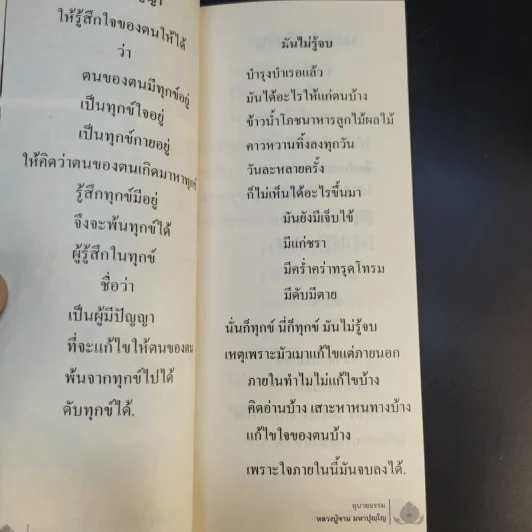 ให้รู้สึกใจของตนให้ได้
ว่า
ตนของตนมีทุกข์อยู่
เป็นทุกข์ใจอยู่
เป็นทุกข์กายอยู่
ให้คิดว่าตนของตนเกิดมาหาทุกข์
รู้สึกทุกข์มีอยู่
จึงจะพ้นทุกข์ได้
ผู้รู้สึกในทุกข์
ชื่อว่า
เป็นผู้มีปัญญา
ที่จะแก้ไขให้ตนของตน
พ้นจากทุกข์ไปได้
ดับทุกข์ได้.
มันไม่รู้จบ
บำรุงบำเรอแล้ว
มันได้อะไรให้แก่ตนบ้าง
ข้าวน้ำโภชนาหารลูกไม้ผลไม้
คาวหวานทิ้งลงทุกวัน
วันละหลายครั้ง
ก็ไม่เห็นได้อะไรขึ้นมา
มันยังมีเจ็บไข้
มีแก่ชรา
มีคร่ำคร่าทรุดโทรม
มีดับมีตาย
นั่นก็ทุกข์ นี่ก็ทุกข์ มันไม่รู้จบ
เหตุเพราะมัวเมาแก้ไขแต่ภายนอก
ภายในทำไมไม่แก้ไขบ้าง
คิดอ่านบ้าง เสาะหาหนทางบ้าง
แก้ไขใจของตนบ้าง
เพราะใจภายในนี้มันจบลงได้.
อุบายธรรม
หลวงปู่จาม มหาปุญฺโญ